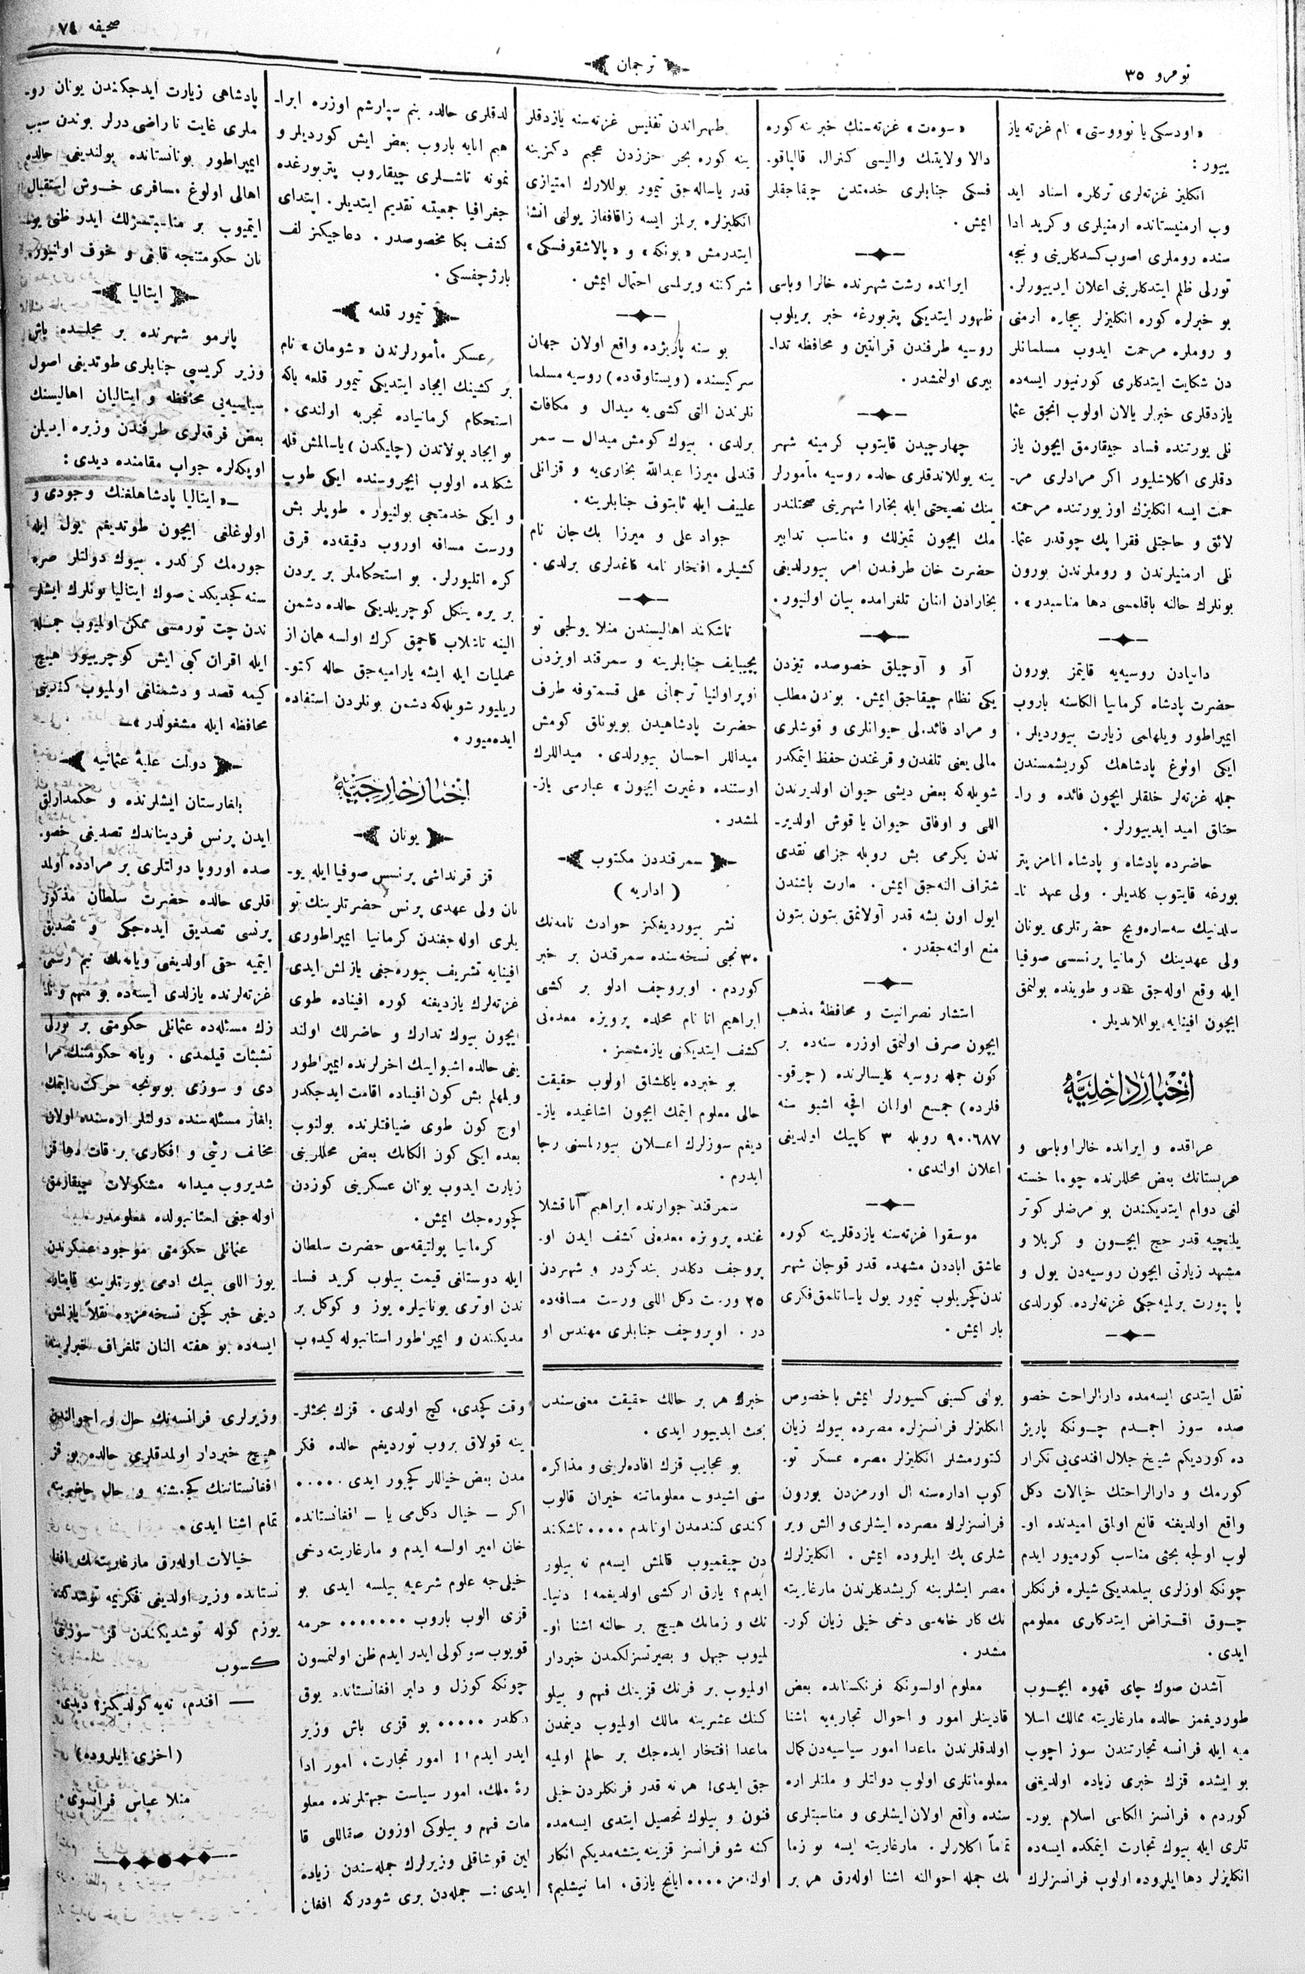 نومرو ٣٥
ترجمان
صحيفه ٧٤
«اودسكى يا نووستى» نام غزته ياز
ييور :
انكليز غزته‌لرى تركلره اسناد ايد
وب ارمنيستانده ارمنيلرى و كريد ادا
سنده روملرى اصوب كسدكلرينى و نيجه
تورلى ظلم ايتدكلرينى اعلان ايدييورلر.
بو خبرلره كوره انكليزلر بيچاره ارمنى
و روملره مرحمت ايدوب مسلمانلر
دن شكايت ايتدكلرى كورنيور ايسه‌ده
يازدقلرى خبرلر يالان اولوب انجق عثما
نلى يورتنده فساد چيقارمق ايچون ياز
دقلرى اكلاشليور اكر مرادلرى مر-
حمت ايسه انكليزك اوز يورتنده مرحمته
لائق و حاجتلى فقرا پك چوقدر عثما-
نلى ارمنيلرندن و روملرندن بورون
بونلرك حالنه باقلمسى دها مناسبدر».
دانيادن روسيه‌يه قايتمز بورون
حضرت پادشاه كرمانيا الكاسنه باروب
ايمپراطور ويلهامى زيارت بيورديلر.
ايكى اولوغ پادشاهك كوريشمسندن
جمله غزته‌لر خلقلر ايچون فائده و را-
حتلق اميد ايدييورلر.
حاضرده پادشاه و پادشاه انامز پتر
بورغه قايتوب كلديلر. ولى عهد نا-
سلدنيك سه‌ساره‌ويچ حضرتلرى يونان
ولى عهدينك كرمانيا پرنسسى صوفيا
ايله وقع اوله‌جق عقد و طوينده بولنمق
ايچون افينايه يوللانديلر.
اخبار داخليه
عراقده و ايرانده خالرا وباسى و
عربستانك بعض محللرنده چوما خسته
لغى دوام ايتديكندن بو مرضلر كوتر
يلنجيه قدر حج ايچون و كربلا و
مشهد زيارتى ايچون روسيه‌دن يول و
پاپورت برلميه‌جكى غزته‌لرده كورلدى
«سوه‌ت» غزته‌سنك خبرينه كوره
دالا ولايتنك واليسى كنرال قالپاقو-
فسكى جنابلرى خدمتدن چقاجقلر
ايمش.
ايرانده رشت شهرنده خالرا وباسى
ظهور ايتديكى پتربورغه خبر بريلوب
روسيه طرفندن قرانتين و محافظه تدا-
بيرى اولنمشدر.
چهارچيدن قايتوب كرمينه شهر
ينه يوللاندقلرى حالده روسيه مأمورلر
ينك نصيحتى ايله بخارا شهرينى صحتلندر
مك ايچون تميزلك و مناسب تدابير
حضرت خان طرفندن امر بيورلديغى
بخارادن النان تلغرامده بيان اولنيور.
آو و آوجيلق خصوصده تيزدن
يكى نظام چيقاجق ايمش. بوندن مطلب
و مراد فائده‌لى حيوانلرى و قوشلرى
مالى يعنى تلفدن و قرغندن حفظ ايتمكدر
شويله‌كه بعض ديشى حيوان اولديرندن
اللى و اوفاق حيوان يا قوش اولدير-
ندن يكرمى بش روبله جزاى نقدى
شتراف النه‌جق ايمش. مارت باشندن
ايول اون بشه قدر آولانمق بتون بتون
منع اولنه‌جقدر.
انتشار نصرانيت و محافظهٔ مذهب
ايچون صرف اولنمق اوزره سنه‌ده بر
كون جمله روسيه كليسالرنده (چرقو-
فلرده) جمع اولنان اقچه اشبو سنه
٩٠٠٦٨٧ روبله ٣ كاپيك اولديغى
اعلان اولندى.
موسقوا غزته‌سنه يازدقلرينه كوره
عاشق اباددن مشهده قدر قوجان شهر
ندن كچريلوب تيمور يول ياساتلمق فكرى
بار ايمش.
طهراندن تفليس غزته‌سنه يازدقلر
ينه كوره بحر حزردن عجم دكزينه
قدر ياساله‌جق تيمور يوللارك امتيازى
انكليزلره برلمز ايسه زاقافقاز يولنى انشا
ايتدرمش «بونكه» و «پالاشقوفسكى»
شركتنه ويرلمسى احتمال ايمش.
بو سنه پاريژده واقع اولان جهان
سركيسنده (ويستاوقده) روسيه مسلما
نلرندن التى كشى يه ميدال و مكافات
برلدى. بيوك كومش ميدال — سمر
قندلى ميرزا عبدالله بخارى‌يه و قزانلى
علييف ايله ثابتوف جنابلرينه.
جواد على و ميرزا بك جان نام
كشيلره افتخار نامه كاغدلرى برلدى.
تاشكند اهاليسندن منلا يولجى تو
يچيبايف جنابلرينه و سمرقند اويزدنى
اوپراولنيا ترجمانى على قسمتوفه طرف
حضرت پادشاهيدن بويوناق كومش
ميداللر احسان بيورلدى. ميداللرك
اوستنده «غيرت ايچون» عبارسى ياز-
لمشدر.
سمرقنددن مكتوب
(اداريه)
نشر بيورديغكز حوادث نامه‌نك
٣٠ نجى نسخه‌سنده سمرقندن بر خبر
كوردم. اوبروچف ادلو بر كشى
ابراهيم اتا نام محلده پرويزه معدنى
كشف ايتديكنى يازمشسز.
بو خبرده ياكلشلق اولوب حقيقت
حالى معلوم ايتمك ايچون اشاغيده ياز-
ديغم سوزلرك اعلان بيورلمسنى رجا
ايدرم.
سمرقند جوارنده ابراهيم آتا قشلا
غنده پرويزه معدنى كشف ايدن او-
بروچف دكلدر بندكزدر و شهردن
٢٥ ورست دكل اللى ورست مسافه‌ده
در. اوبروچف جنابلرى مهندس او
لدقلرى حالده بنم سپارشم اوزره ابرا-
هيم اتايه باروب بعض ايش كورديلر و
نمونه تاشلرى چيقاروب پتربورغده
جغرافيا جمعيتنه تقديم ايتديلر. ابتداى
كشف بكا مخصوصدر. دعاجيكز لف
بارژچفسكى.
تيمور قلعه
عسكر مأمورلرندن «شومان» نام
بر كشينك ايجاد ايتديكى تيمور قلعه ياكه
استحكام كرمانياده تجربه اولندى.
بو ايجاد بولاتدن (چليكدن) ياسالمش قله
شكلنده اولوب ايچروسنده ايكى طوپ
و ايكى خدمتجى بولنيور. طوپلر بش
ورست مسافه اوروب دقيقه‌ده قرق
كره اتليورلر. بو استحكاملر بر يردن
بر يره ينكل كوچريلديكى حالده دشمن
الينه تاشلاب قاچمق كرك اولسه همان از
عمليات ايله ايشه يارامیه‌جق حاله كتو-
ريليور شويله‌كه دشمن بونلردن استفاده
ايده‌ميور.
اخبار خارجيه
يونان
قز قرنداشى پرنسس صوفيا ايله يو-
نان ولى عهدى پرنس حضرتلرينك تو
يلرى اوله‌جغندن كرمانيا ايمپراطورى
افينايه تشريف بيوره‌جغى يازلمش ايدى
غزته‌لرك يازديغنه كوره افيناده طوى
ايچون بيوك تدارك و حاضرلك اولند
يغى حالده اشبو ايسك اخرلرنده ايمپراطور
ويلهلم بش كون افيناده اقامت ايدجكدر
اوچ كون طوى ضيافتلرنده بولنوب
بعده ايكى كون الكانك بعض محللرينى
زيارت ايدوب يونان عسكرينى كوزدن
كچوره‌جك ايمش.
كرمانيا پولتيقه‌سى حضرت سلطان
ايله دوستلغى قيمت بيلوب كريد فسا-
ندن اوترى يونانيلره يوز و كوكل بر
مديكندن و ايمپراطور استانبوله كيدوب
پادشاهى زيارت ايدجكندن يونان رو-
ملرى غايت ناراضى درلر بوندن سبب
ايمپراطور يونانستانده بولنديغى حالده
اهالى اولوغ مسافرى خوش استقبال
ايتميوب بر مناسبتسزلك ايدر ظنى يو-
نان حكومتنجه قايغى و خوف اولنيور.
ايتاليا
پالرمو شهرنده بر مجلسده باش
وزير كريسپى جنابلرى طوتديغى اصول
سياسيه‌يى محافظه و ايتاليان اهاليسنك
بعض فرقه‌لرى طرفندن وزيره ايديلن
اوپكه‌لره جواب مقامنده ديدى:
—«ايتاليا پادشاهلغنك وجودى و
اولوغلغى ايچون طوتديغم يول ايله
جورمك كركدر. بيوك دولتلر صره
سنه كچديكدن صوك ايتاليا بونلرك ايشلر
ندن چت تورمسى ممكن اولميوب جمله
ايله اقران كبى ايش كوچرييور هيچ
كيمه قصد و دشمنلغى اولميوب كندينى
محافظه ايله مشغولدر».
دولت عليهٔ عثمانيه
بلغارستان ايشلرنده و حكمدارلق
ايدن پرنس فرديناندك تصديقى خصو-
صده اوروپا دولتلرى بر مرادده اولمد
اقلرى حالده حضرت سلطان مذكور
پرنسى تصديق ايده‌جكى و تصديق
ايتميه حقى اولديغى ويانه‌نك نيم رسمى
غزته‌لرنده يازلدى ايسه‌ده بو مهم و نا-
زك مسئله‌ده عثمانلى حكومتى بر تورلى
تشبثات قيلمدى. ويانه حكومتنك مرا
دى و سوزى بويونجه حركت ايتمك
بلغار مسئله‌سنده دولتلر اره‌سنده اولان
مخالف رئى و افكارى بر قات دها قز
شديروب ميدانه مشكولات چيقارمق
اوله‌جغى استانبولده معلومدر.
عثمانلى حكومتى موجود عسكرندن
يوز اللى بيك ادمى يورتلرينه قايتار-
ديغى خبر كچن نسخه‌مزده نقلاً يازلمش
ايسه‌ده بو هفته النان تلغراف خبرلرينه
نقل ايتدى ايسه‌مده دارالراحت خصو
صده سوز اچمدم چونكه پاريژ
ده كورديكم شيخ جلال افندى‌يى تكرار
كورمك و دارالراحتك خيالات دكل
واقع اولديغنه قانع اولمق اميدنده او-
لوب اولجه بحثى مناسب كورميور ايدم
چونكه اوزلرى بيلمديكى شيلره فرنكلر
چوق اقتراض ايتدكلرى معلومم
ايدى.
آشدن صوك چاى قهوه ايچوب
طورديغمز حالده مارغاريته ممالك اسلا
ميه ايله فرانسه تجارتندن سوز اچوب
بو ايشده قزك خبرى زياده اولديغنى
كوردم. فرانسز الكاسى اسلام يور-
تلرى ايله بيوك تجارت ايتمكده ايسه‌ده
انكليزلر دها ايلروده اولوب فرانسزلرك
يولنى كسينى كسيورلر ايمش باخصوص
انكليزلر فرانسزلره مصرده بيوك زيان
كتورمشلر انكليزلر مصره عسكر تو-
كوب اداره‌سنه ال اورمزدن بورون
فرانسزلرك مصرده ايشلرى و الش وير
شلرى پك ايلروده ايمش. انكليزلرك
مصر ايشلرينه كريشدكلرندن مارغاريته
نك كارخانه‌سى دخى خيلى زيان كور-
مشدر.
معلوم اولسونكه فرنكستانده بعض
قادينلر امور و احوال تجاريه‌يه اشنا
اولدقلرندن ماعدا امور سياسيه‌دن كمال
معلوماتلرى اولوب دولتلر و ملتلر اره
سنده واقع اولان ايشلرى و مناسبتلرى
تماماً اكلارلر. مارغاريته ايسه بو زما
نك جمله احوالنه اشنا اوله‌رق هر بر
خبرك هر بر حالك حقيقت معنى‌سندن
بحث ايدييور ايدى.
بو عجايب قزك افاده‌لرينى و مذاكره
سنى اشيدوب معلوماتنه خيران قالوب
كندى كندمدن اوتاندم .... تاشكند
دن چيقميوب قالمش ايسه‌م نه بيلور
ايدم؟ يازق ار كشى اولديغمه! دنيا-
نك و زمانك هيچ بر حالنه اشنا او-
لميوب جهل و بصيرتسزلكمدن خبردار
اولميوب بر فرنك قزينك فهم و بيلو
كنك عشرينه مالك اولميوب ديغمدن
ماعدا افتخار ايده‌جك بر حالم اولميه
جق ايدى! هر نه قدر فرنكلردن خيلى
فنون و بيلوك تحصيل ايتدى ايسه‌مده
كنه شو فرانسز قزينه يتشه‌مديكم انكار
اولنه‌مز .... ايانج يازق. اما نيشليم؟
وقت كچدى، كچ اولدى. قزك بحثلر-
ينه قولاق بروب تورديغم حالده فكر
مدن بعض خياللر كچيور ايدى .....
اكر — خيال دكل‌مى يا — افغانستانده
خان امير اولسه ايدم و مارغاريته دخى
خيلى‌جه علوم شرعيه بيلسه ايدى بو
قزى الوب باروب ....... حرمه
قويوب سوكولى ايدر ايدم ظن اولنمسون
چونكه كوزل و دلبر افغانستانده يوق
دكلدر ..... بو قزى باش وزير
ايدر ايدم!! امور تجارت، امور ادا
رهٔ ملك، امور سياست جهتلرنده معلو
مات فهم و بيلوكى اوزون صقاللى قا
لين قوشاقلى وزيرلرك جمله‌سندن زياده
ايدى:— جمله‌دن برى شودركه افغان
وزيرلرى فرانسه‌نك حال و احوالندن
هيچ خبردار اولمدقلرى حالده بو قز
افغانستاننك كچمشنه و حال حاضرينه
تمام اشنا ايدى.
خيالات اوله‌رق مارغاريته‌نك افغا
نستانده وزير اولديغى فكريمه توشدكده
يوزم كوله توشديكندن قز سوزينى
كسوب
— افندم، نه‌يه كولديكز؟ ديدى.
(اخرى ايلروده)
منلا عباس فرانسوى.